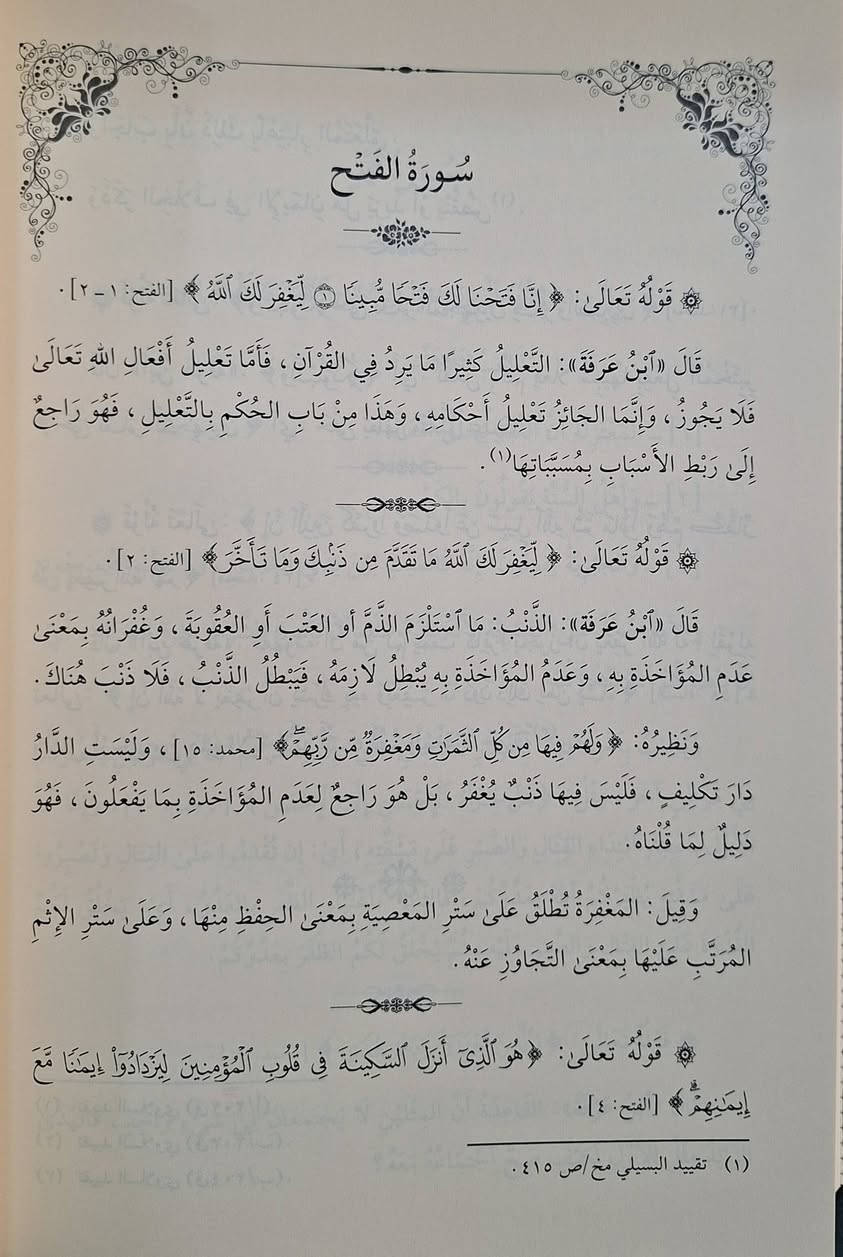 سُورَةُ الفَتْح
قَوْلُهُ تَعَالَىٰ: ﴿ إِنَّا فَتَحْنَا لَكَ فَتْحًا مُّبِينًا ۝١ لِّيَغْفِرَ لَكَ ٱللَّهُ ﴾ [الفتح: ١ ـ ٢].
قَالَ «ٱبْنُ عَرَفَةَ»: التَّعْلِيلُ كَثِيرًا مَا يَرِدُ فِي القُرْآنِ، فَأَمَّا تَعْلِيلُ أَفْعَالِ اللهِ تَعَالَىٰ
فَلَا يَجُوزُ، وَإِنَّمَا الجَائِزُ تَعْلِيلُ أَحْكَامِهِ، وَهَذَا مِنْ بَابِ الحُكْمِ بِالتَّعْلِيلِ، فَهُوَ رَاجِعٌ
إِلَىٰ رَبْطِ الأَسْبَابِ بِمُسَبَّبَاتِهَا(١).
قَوْلُهُ تَعَالَىٰ: ﴿ لِّيَغْفِرَ لَكَ ٱللَّهُ مَا تَقَدَّمَ مِن ذَنۢبِكَ وَمَا تَأَخَّرَ ﴾ [الفتح: ٢].
قَالَ «ٱبْنُ عَرَفَةَ»: الذَّنْبُ: مَا ٱسْتَلْزَمَ الذَّمَّ أو العَتْبَ أَوِ العُقُوبَةَ، وَغُفْرَانُهُ بِمَعْنَىٰ
عَدَمِ المُؤَاخَذَةِ بِهِ، وَعَدَمُ المُؤَاخَذَةِ بِهِ يُبْطِلُ لَازِمَهُ، فَيَبْطُلُ الذَّنْبُ، فَلَا ذَنْبَ هُنَاكَ.
وَنَظِيرُهُ: ﴿ وَلَهُمْ فِيهَا مِن كُلِّ ٱلثَّمَرَٰتِ وَمَغْفِرَةٌ مِّن رَّبِّهِمْۖ ﴾ [محمد: ١٥]، وَلَيْسَتِ الدَّارُ
دَارَ تَكْلِيفٍ، فَلَيْسَ فِيهَا ذَنْبٌ يُغْفَرُ، بَلْ هُوَ رَاجِعٌ لِعَدَمِ المُؤَاخَذَةِ بِمَا يَفْعَلُونَ، فَهُوَ
دَلِيلٌ لِمَا قُلْنَاهُ.
وَقِيلَ: المَغْفِرَةُ تُطْلَقُ عَلَىٰ سَتْرِ المَعْصِيَةِ بِمَعْنَىٰ الحِفْظِ مِنْهَا، وَعَلَىٰ سَتْرِ الإِثْمِ
المُرَتَّبِ عَلَيْهَا بِمَعْنَىٰ التَّجَاوُزِ عَنْهُ.
قَوْلُهُ تَعَالَىٰ: ﴿ هُوَ ٱلَّذِىٓ أَنزَلَ ٱلسَّكِينَةَ فِى قُلُوبِ ٱلْمُؤْمِنِينَ لِيَزْدَادُوٓا۟ إِيمَٰنًا مَّعَ
إِيمَٰنِهِمْۗ ﴾ [الفتح: ٤].
(١) تقييد البسيلي مخ/ص ٤١٥.